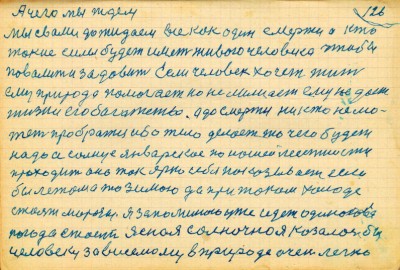 126
А чего мы ждем
мы свами дожидаем все как один смерти а кто
такие силы будет имет живого человека чтобы
повалит и задовит Сем человек хочет жит
ему природа помогает но не мишает ему на дет
жизни его богатство. а до смерти ни кто не мо-
жет пробратися бо тело делает то чего будет
надо а солнце январское по нашей местности
проходит она так ярко себя показывает если
был летом а то зимою да при таком холоде
стоят морозы. Я запоминаю уже идет одинакова
погода стоит ясная солночноя казалос бы
человеку зависемому в природе очен легко